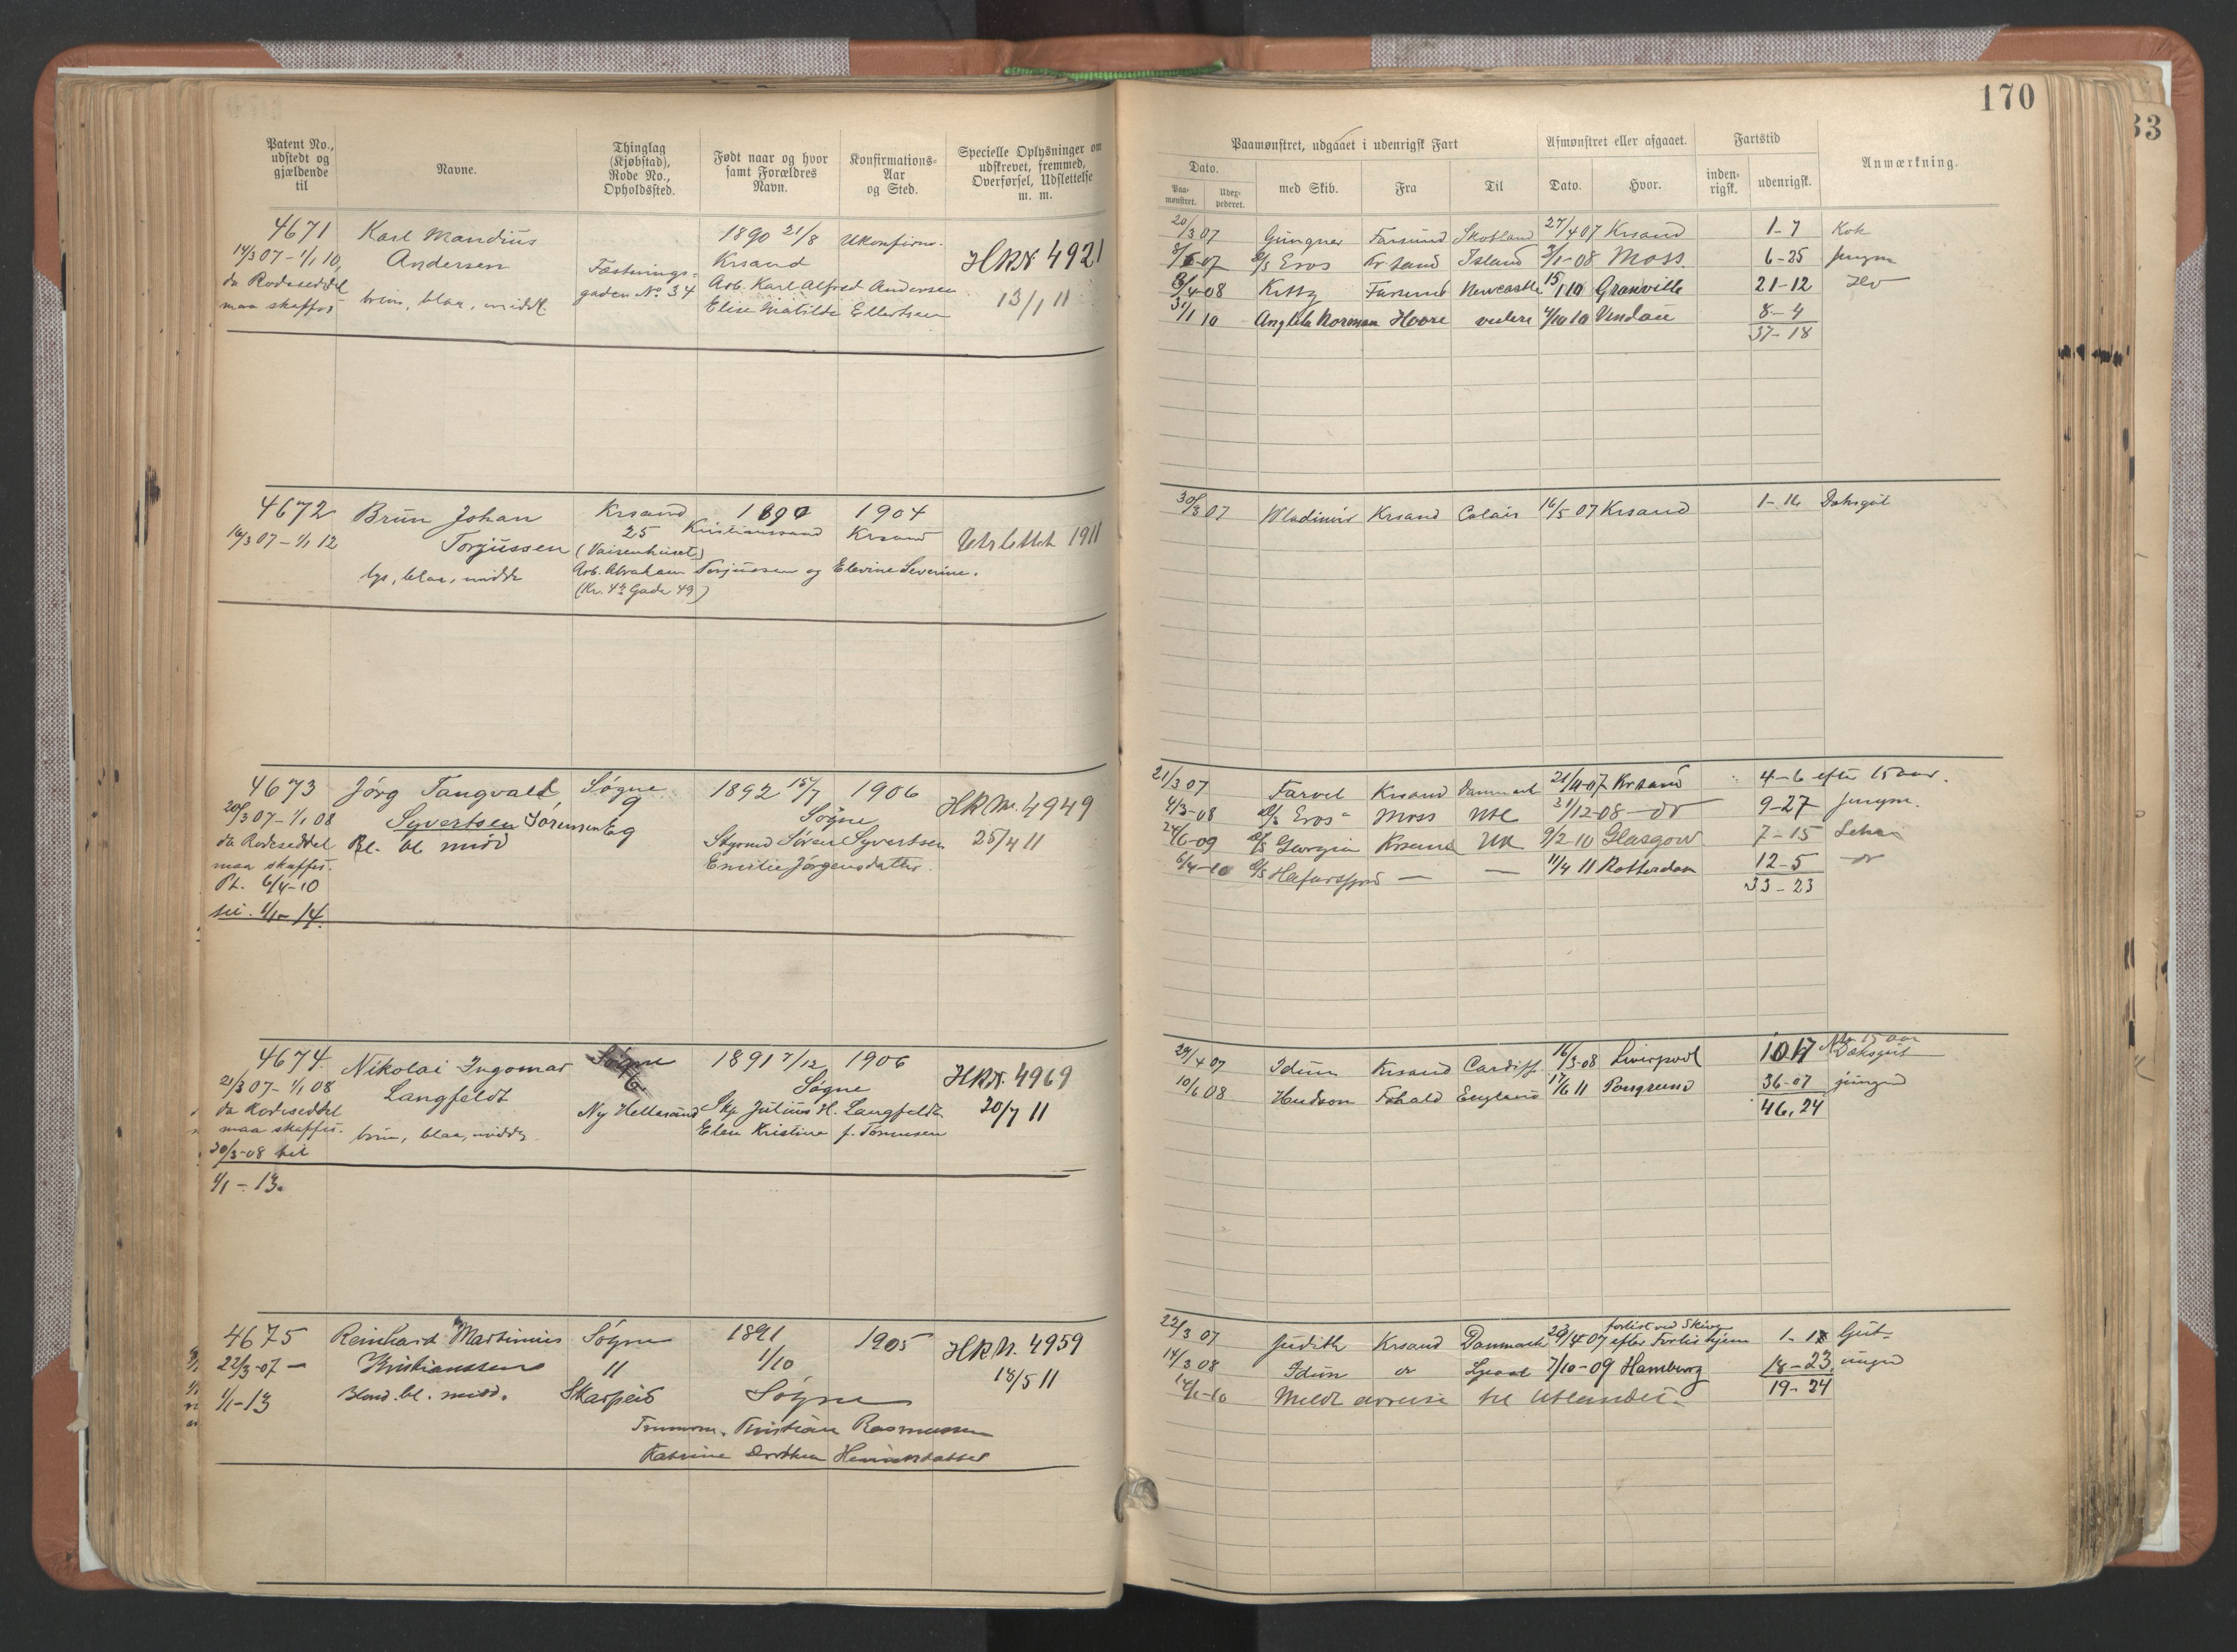 170
33
Patent No., udstedt og gjældende til
Navne.
Thinglag (Kjøbstad), Rode No., Opholdssted.
Født naar og hvor samt Forældres Navn.
Konfirmations-Aar og Sted.
Specielle Oplysninger om udskrevet, fremmed, Overførsel, Udslettelse m. m.
Paamønstret, udgaaet i udenrigsk Fart
Afmønstret eller afgaaet.
Fartstid
Anmærkning.
Dato.
Paa-mønstret.
Udex-pederet.
med Skib.
Fra
Til
Dato.
Hvor.
inden-rigsk.
udenrigsk.
4671 Karl Mandius 1890 21/8 Ukonfirm.
14/3 07 - 1/1 10, Andersen Krsand HRN 4921
da Rodeseddel Fæstnings- Arb. Karl Alfred Andersen
maa skaffes brun, blaa, middl. gaden No 34 Elise Matilde Ellertsen 13/1 11
20/3 07 Gungner Farsund Skotland 27/4 07 Krsand 1-7 Kok
8/6 07 S/S Eros Kr.sand Island 3/1-08 Moss. 6-25 Jungm
8/4-08 Kitty Farsund Newcastle 15/1 10 Granville 21-12
31/1 10 Norman Havre videre 4/10 10 8-4
37-18
4672 Brun Johan Krsand 1890 1904
16/3 07 - 1/1 12 Torjussen 25 Kristianssand Krsand Utslettet 1911
(Vaisenhuset)
lys, blaa, middl Arb. Abraham Torjussen og Elevine Severine.
(Kr. 4de Gade 49)
30/3 07 Wladimir Krsand Calais 16/5 07 Krsand 1-16 Dæksgut
4673 Jørg Tangvald Søgne 1892 15/7 1906 HRN. 4949
20/3 07 - 1/1 08 Syvertsen Sørensen Eg 9 Søgne
da Rodeseddel Bl. bl midd Skysmd Søren Syvertsen 25/4 11
maa skaffes. Emilie Jørgensdatter.
Pt. 6/4-10
til. 1/1-14.
21/3 07 Farvel Krsand Danmark 21/11-07 Krsand 4-6 efter 15 aar.
4/3-08 D/S Eros Moss 31/12-08 - do 9-27 Jungm.
24/6-09 D/S Georgia Krsand UK 9/2 10 Glasgow 7-15
6/4-10 S/S Hafursfjord — — 11/4 11 Rotterdam 12-5 do
33-23
4674. Nikolai Ingomar Søgne 1891 7/12 1906 HRN. 4969
21/3 07 - 1/1 08 Langfeldt Søgne
da Rodeseddel Ny Hellesund Skp. Julius H. Langfeldt 20/7 11
maa skaffes. brun, blaa, middl. Elen Kristine f. Tønnesen
30/3-08 til
1/1 - 13.
24/4 07 Idun Krsand Cardiff 16/3-08 Liverpool 10 17 15 aar Dæksgut
10/6 08 Hudson England 17/6 11 Porsgrund 36-07 jungmd
46,24
4675 Reinhard Martinius Søgne 1891 1905 HRN. 4959
22/3-07 - Kristianssen 11 1/10 18/5 11
1/1-13 Blond. bl. midd. Skarpeid Søgne
Tømmerm. Kristian Rasmussen
Katrine Dorthea Henriksdatter
22/3 07 Judith Krsand Danmark 23/4 07 forlist ved Skive efter Forlis hjem 1-1 Gut
14/3 08 Idun do 7/10-09 Hamburg 18-23 jungm
19-24
Meldt avreise til Utlandet.